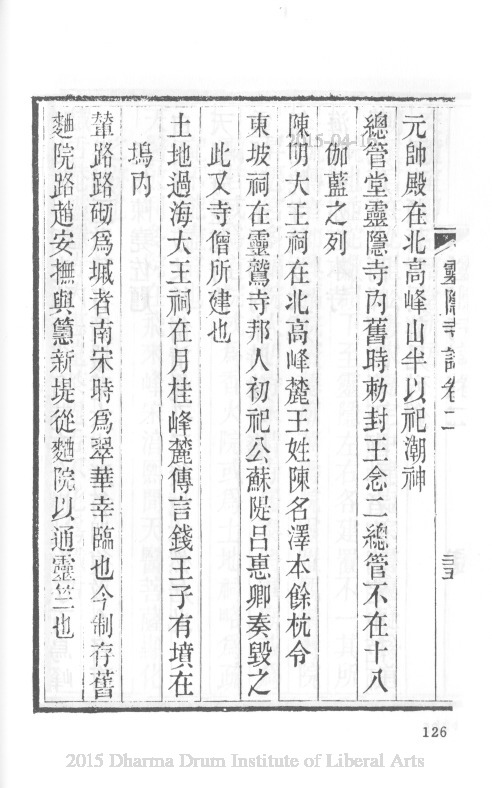 靈隱寺誌卷二
元帥殿在北高峰山半以祀潮神
總管堂靈隱寺內舊時勅封王念二總管不在十八
伽藍之列
陳明大王祠在北高峰麓王姓陳名澤本餘杭令
東坡祠在靈鷲寺邦人初祀公蘇隄呂惠卿奏毀之
此又寺僧所建也
土地過海大王祠在月桂峰麓傳言錢王子有墳在
塢內
輦路路砌爲墄者南宋時爲翠華幸臨也今制存舊
麯院路趙安撫與𥲅新堤從麯院以通靈竺也
126
2015 Dharma Drum Institute of Liberal Arts